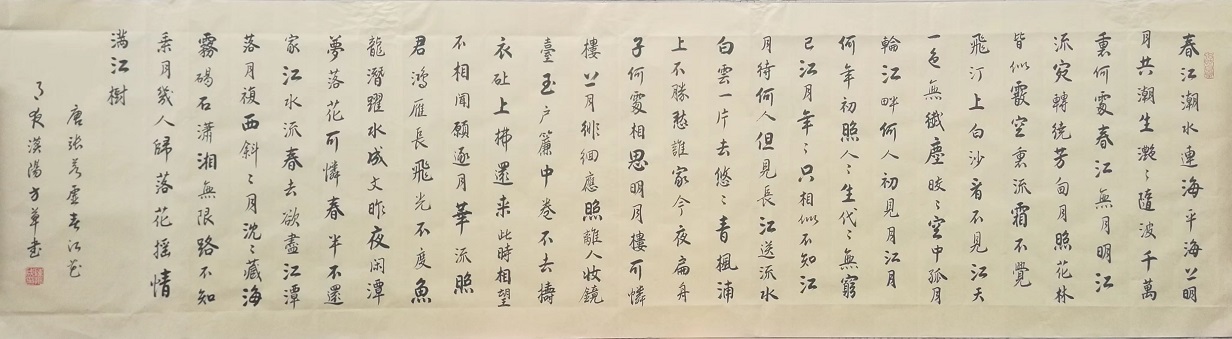 春江潮水連海平海上明
月共潮生灔〻隨波千萬
裏何處春江無月明江
流宛轉繞芳甸月照花林
皆似霰空裏流霜不覺
飛汀上白沙看不見江天
一色無纖塵皎〻空中孤月
輪江畔何人初見月江月
何年初照人人〻生代〻無窮
已江月年〻只相似不知江
月待何人但見長江送流水
白雲一片去悠〻青楓浦
上不勝愁誰家今夜扁舟
子何處相思明月樓可憐
樓上月徘徊應照離人妝鏡
臺玉户簾中卷不去擣
衣砧上拂還来此時相望
不相聞願逐月華流照
君鴻雁長飛光不度魚
龍潛躍水成文昨夜闲潭
夢落花可憐春半不還
家江水流春去欲盡江潭
落月複西斜〻月沈〻藏海
霧碣石瀟湘無限路不知
乘月幾人歸落花摇情
满江樹
唐張若虛春江花
月夜漢陽方華書